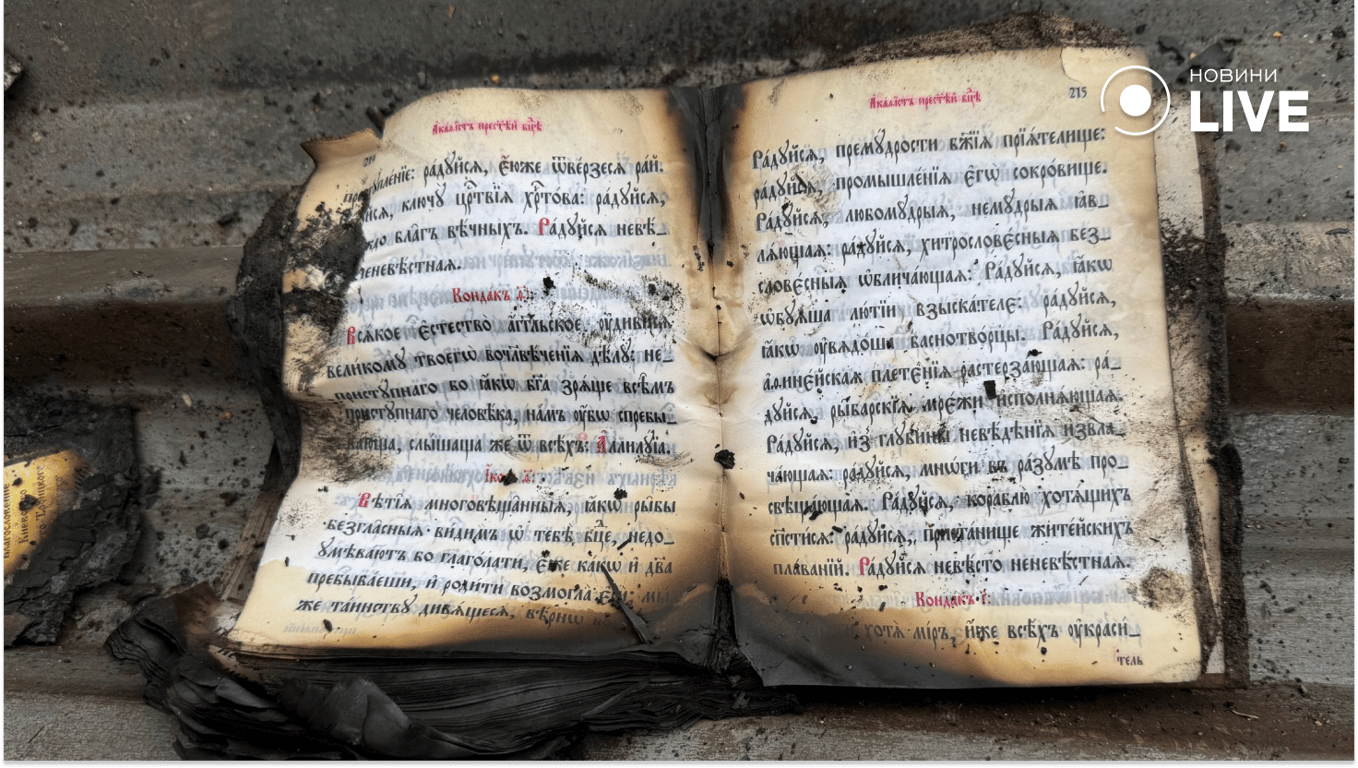 НОВИНИ
LIVE
Акаѳістъ прест҃ѣй бц҃ѣ
214
радꙋйсѧ, Е҆́юже ѿве́рзесѧ ра́й.
ключꙋ̀ црⷭ҇твїѧ хрⷭ҇то́ва: ра́дꙋйсѧ,
бла̑гъ вѣ́чныхъ. Ра́дꙋйсѧ невѣ́_
неневѣ́стнаѧ.
Конда́къ
Всѧ́кое є҆стество̀ а҆́гг҃льское ᲂу҆диви́сѧ
вели́комꙋ твоегѡ̀ вочл҃вѣ́ченїѧ дѣ́лꙋ: не_
пристꙋ́пнаго бо ꙗ҆́кѡ бг҃а зрѧ́ше всѣ̑мъ
пристꙋ́пнаго человѣ́ка, на́мъ ᲂу҆́бѡ спребы_
ва́юща, слы́шаща же ѿ всѣ́хъ: А҆ллилꙋ́їа.
Вѣтїѧ̑ многовѣща̑нныѧ, ꙗ҆́кѡ ры̑бы
безгла̑сныѧ ви́димъ ѡ҆ тебѣ̀ бцⷣе, недо_
ꙋмѣва́ютъ бо глаго́лати, є҆́же ка́кѡ и҆ дв҃а
пребыва́еши, и҆ роди́ти возмогла̀ є҆сѝ: мы́
же та́инствꙋ дивѧ́щесѧ, вѣ́рнѡ
Акаѳістъ прест҃ѣй бц҃ѣ
215
Ра́дꙋйсѧ, премꙋ́дрости бж҃їѧ прїѧ́телище:
ра́дꙋйсѧ, промышле́нїѧ є҆гѡ̀ сокро́вище.
Ра́дꙋйсѧ, любомꙋ̑дрыѧ, немꙋ̑дрыѧ ꙗ҆в_
лѧ́ющаѧ: ра́дꙋйсѧ, хитрослове́сныѧ без_
слове́сныѧ ѡ҆блича́ющаѧ. Ра́дꙋйсѧ, ꙗ҆́кѡ
ѡ҆бꙋѧ́ша лю́тїи взыска́теле: ра́дꙋйсѧ,
ꙗ҆́кѡ ᲂу҆вѧдо́ша баснотво́рцы. Ра́дꙋйсѧ,
а҆ѳине́йскаѧ плете̑нїѧ растерза́ющаѧ: ра́_
дꙋйсѧ, рыба́рскїѧ мре́жи и҆сполнѧ́ющаѧ.
Ра́дꙋйсѧ, и҆з̾ глꙋбины̀ невѣ́дѣнїѧ и҆звла_
ча́ющаѧ: ра́дꙋйсѧ, мнѡ́ги въ ра́зꙋмѣ про_
свѣща́ющаѧ. Ра́дꙋйсѧ, кораблю̀ хотѧ́щихъ
сп҃сти́сѧ: ра́дꙋйсѧ, приста́нище жите́йскихъ
пла́ванїй. Ра́дꙋйсѧ невѣ́сто неневѣ́стнаѧ.
Конда́къ і҃:
хотѧ̀ мі́ръ, и҆́же всѣ́хъ ᲂу҆краси́_
тель
Благословению
Киевско